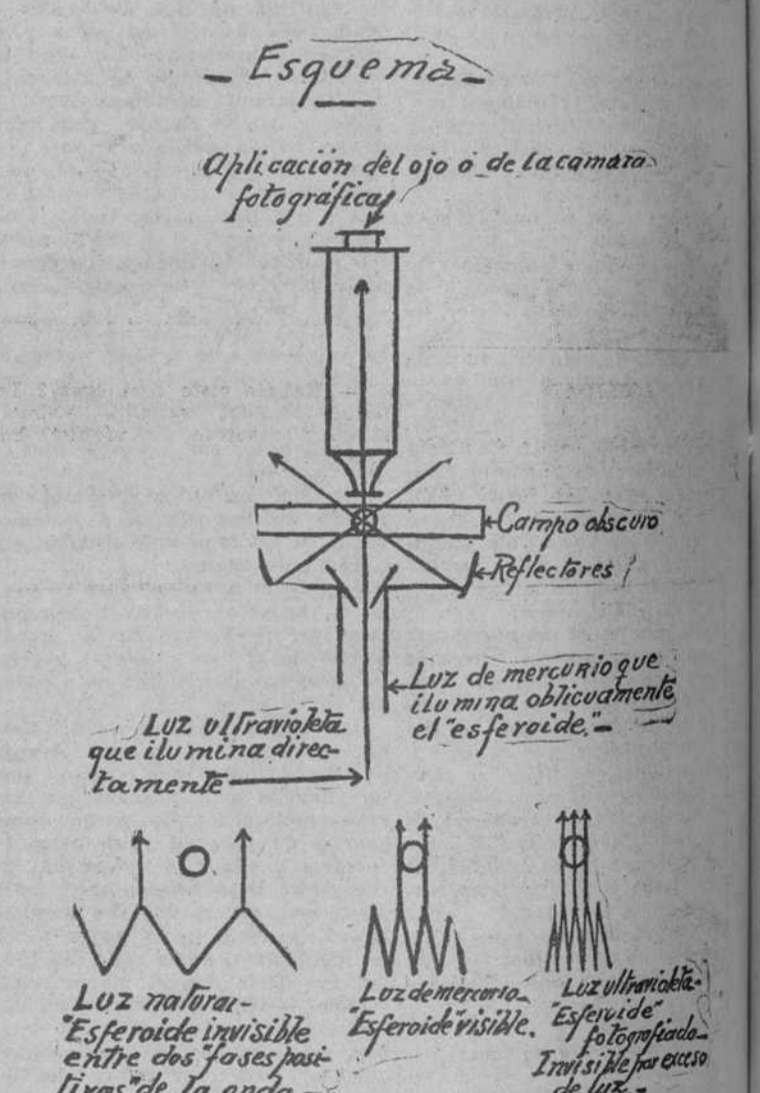 - Esquema -
Aplicación del ojo ó de la camara
fotográfica
Campo obscuro
Reflectores
Luz de mercurio que
ilumina oblicuamente
el "esferoide." -
Luz ultravioleta
que ilumina direc-
tamente
Luz natural -
"Esferoide invisible
entre dos "fases posi-
tivas" de la onda -
Luz de mercurio -
"Esferoide" visible.
Luz ultravioleta -
"Esferoide"
fotografiado -
Invisible por exceso
de luz -